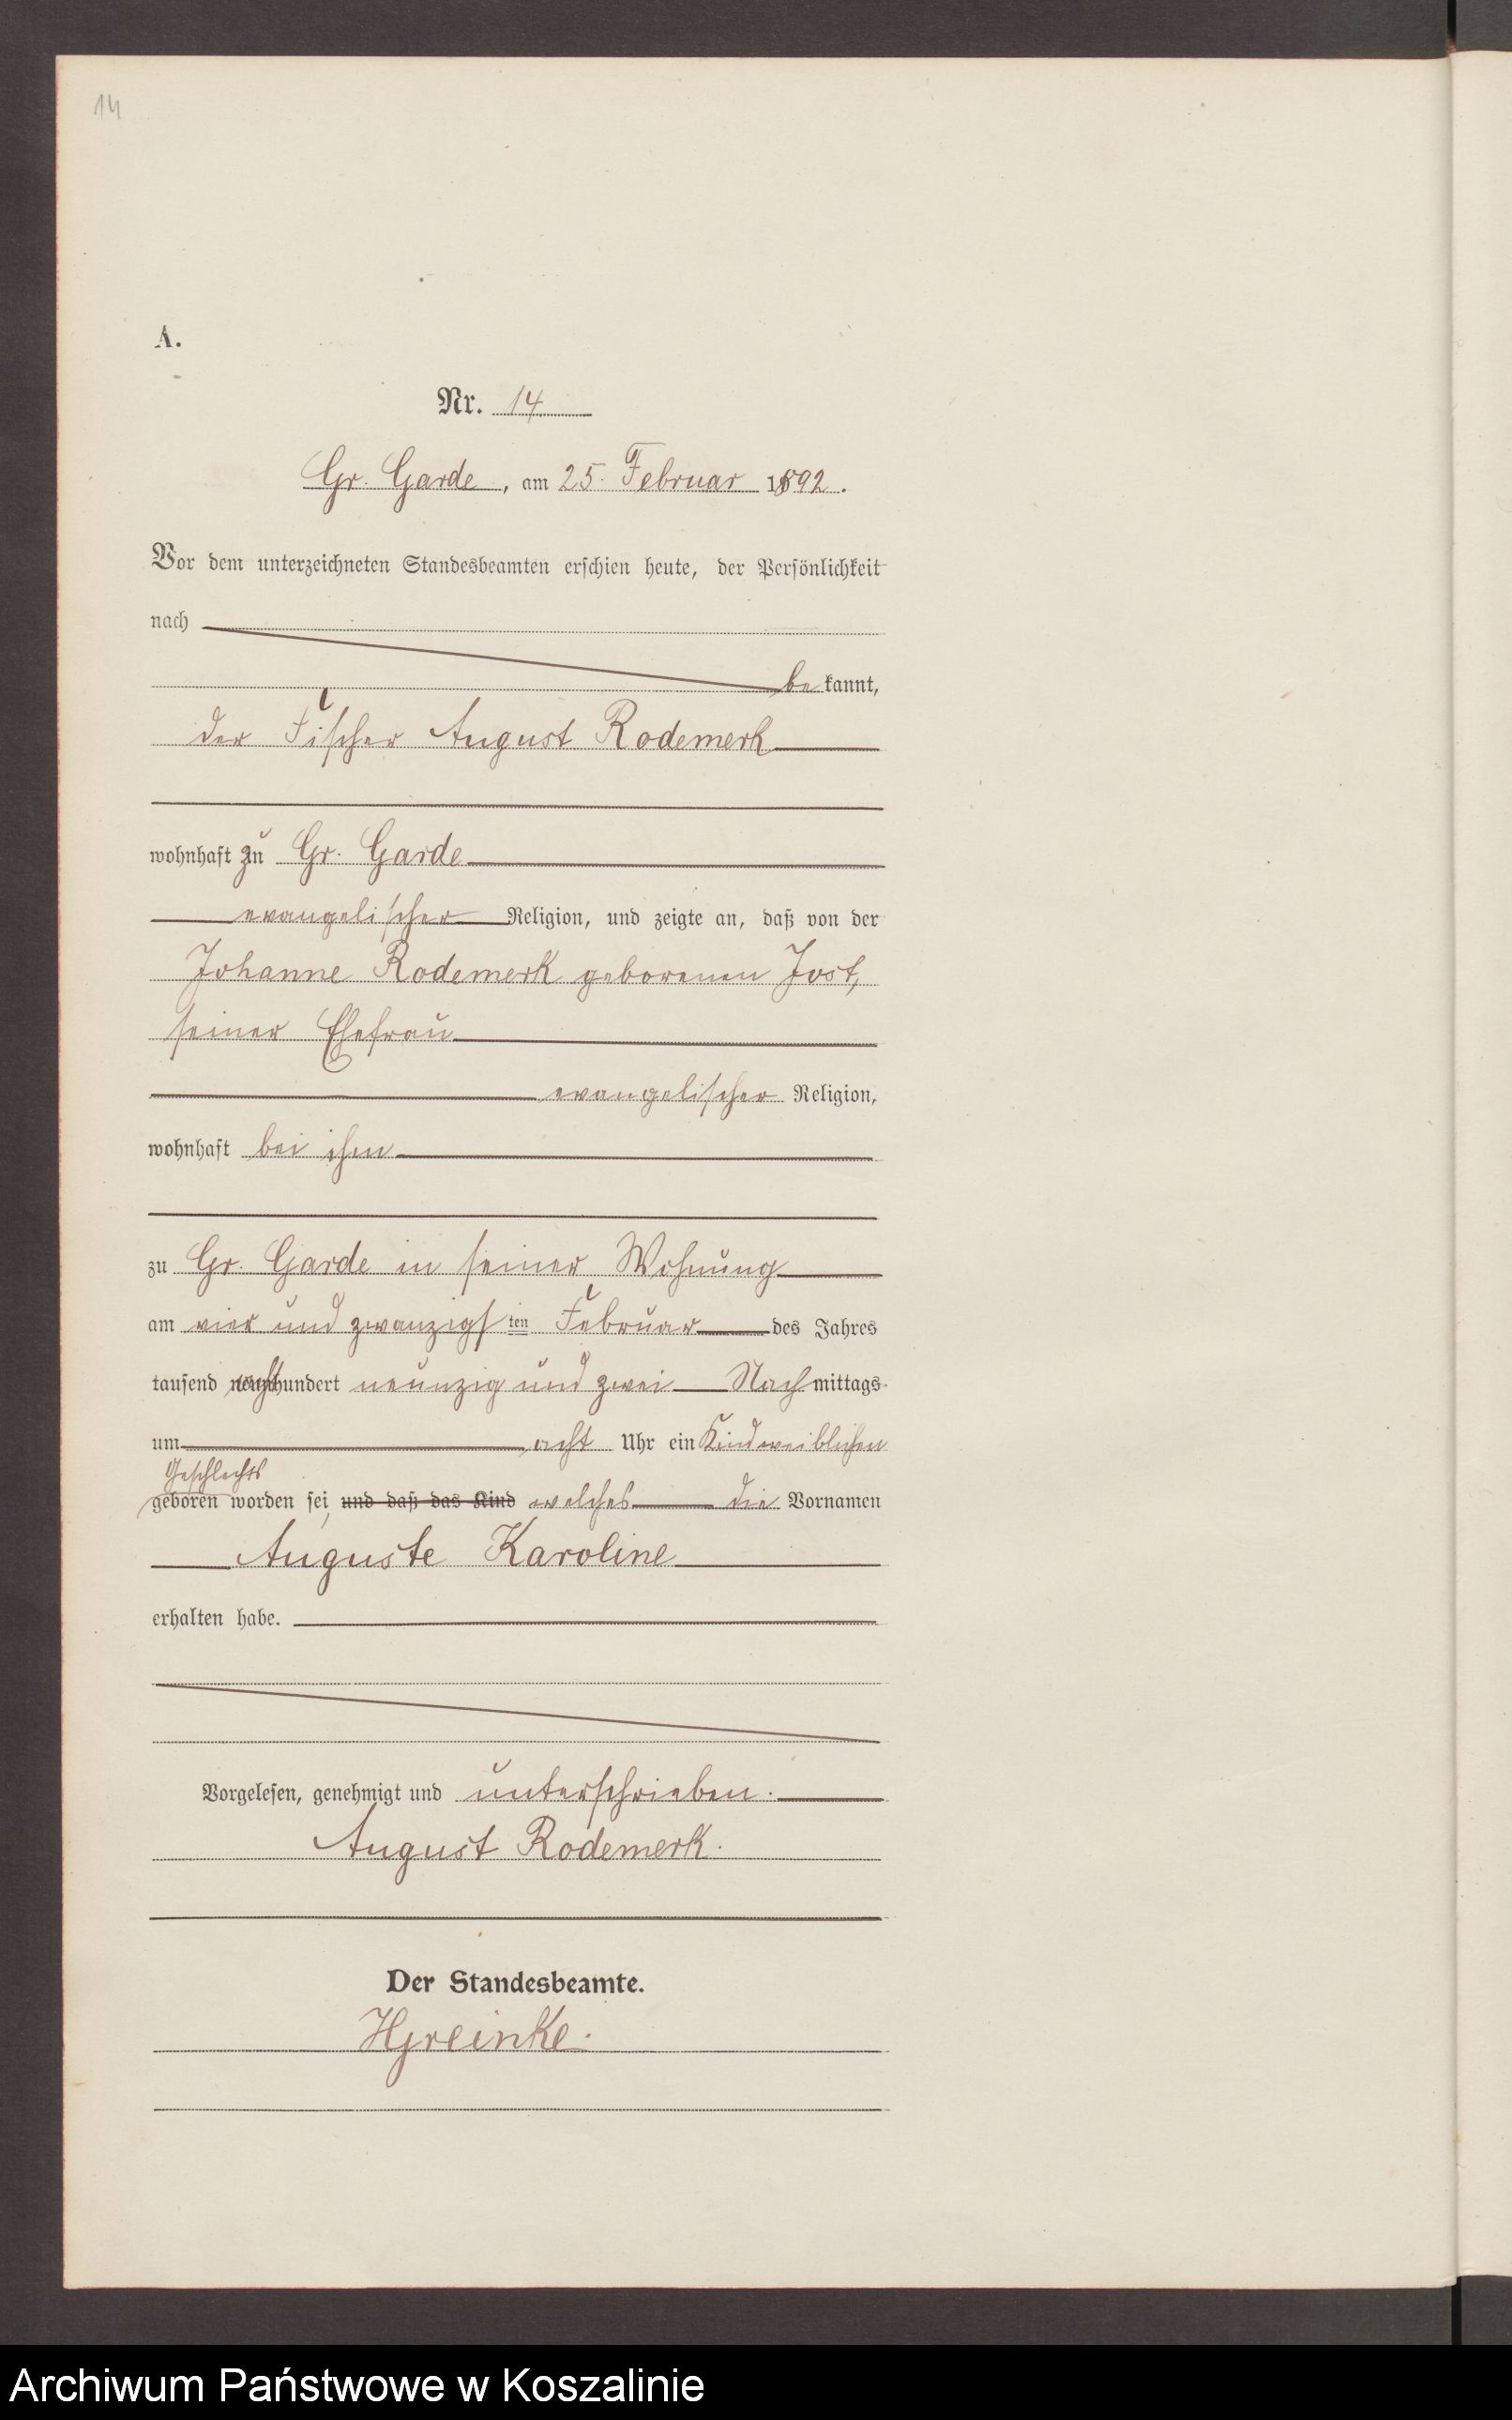 14
A.
Nr. 14
Gr. Garde, am 25. Februar 1892.
Vor dem unterzeichneten Standesbeamten erschien heute, der Persönlichkeit
nach
be kannt,
der Fischer August Rodemerk
wohnhaft zu Gr. Garde
evangelischer Religion, und zeigte an, daß von der
Johanne Rodemerk geborenen Jost,
seiner Ehefrau
evangelischer Religion,
wohnhaft bei ihm
zu Gr. Garde in seiner Wohnung
am vier und zwanzigsten Februar des Jahres
tausend achthundert neunzig und zwei Nachmittags
um acht Uhr ein Kind weiblichen
Geschlechts
geboren worden sei, und daß das Kind welches die Vornamen
Auguste Karoline
erhalten habe.
Vorgelesen, genehmigt und unterschrieben.
August Rodemerk.
Der Standesbeamte.
HGreinke.
Archiwum Państwowe w Koszalinie